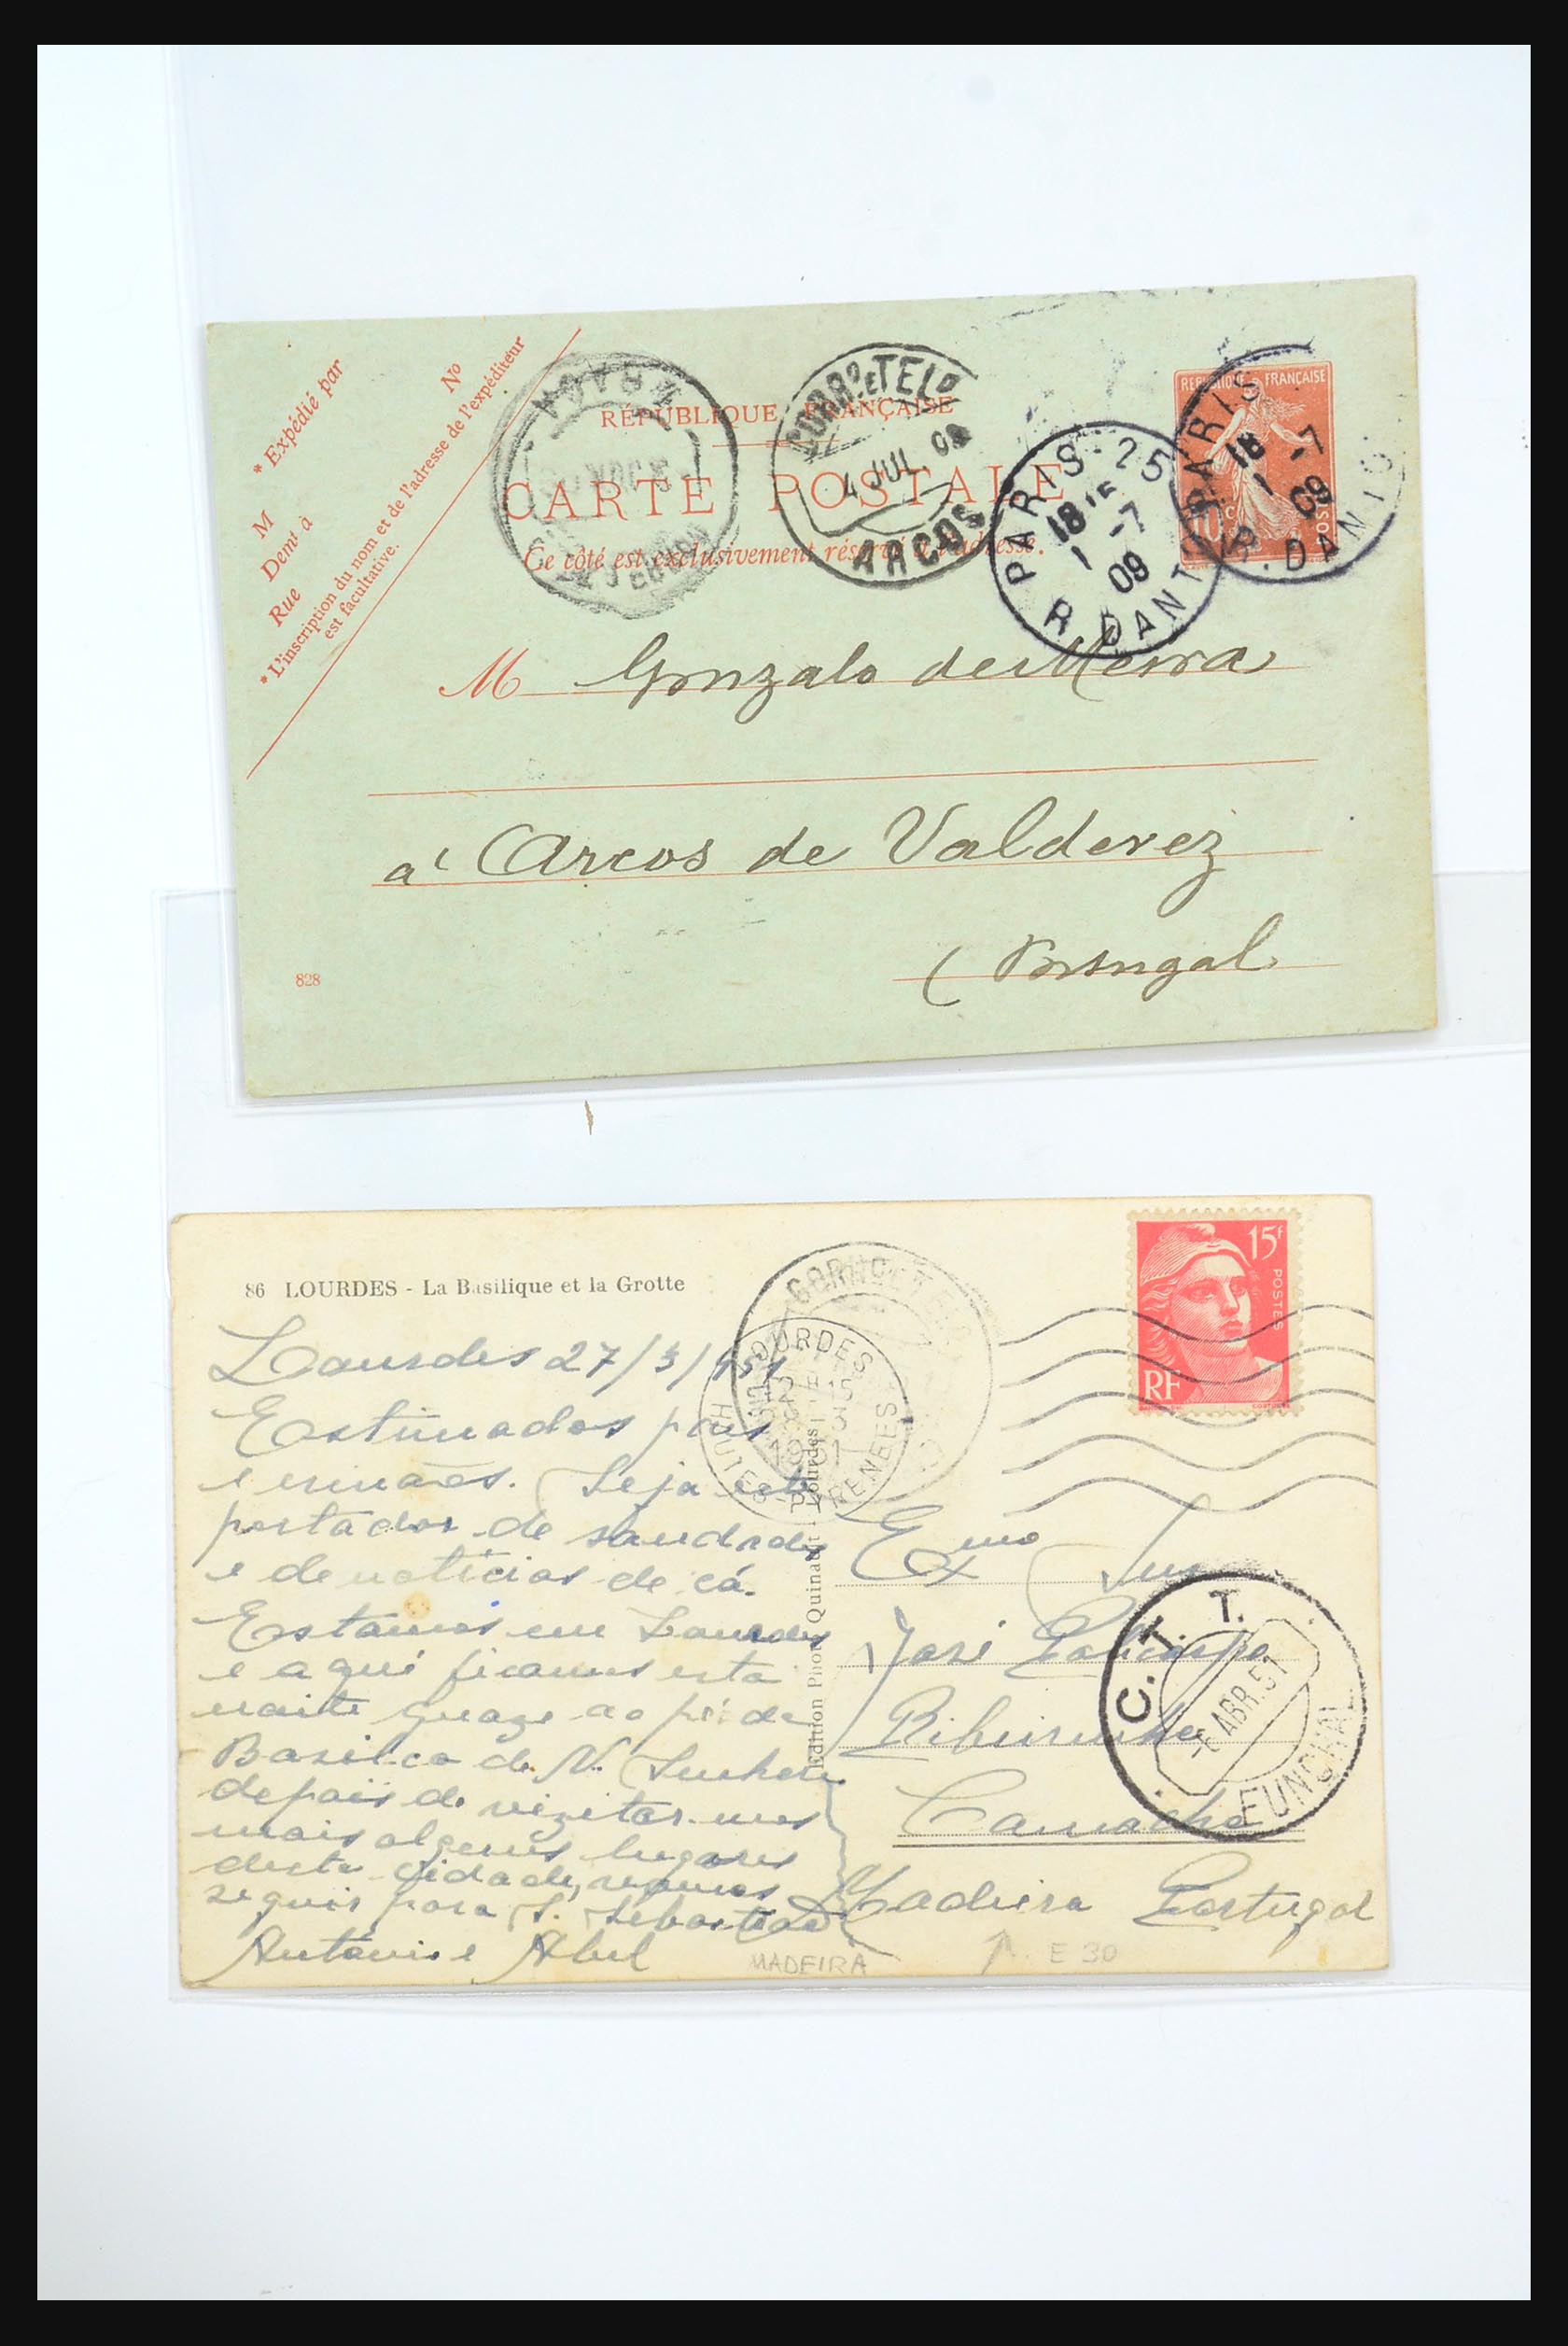 * Expédié par
Nº
M
Demt à
Rue
*L'inscription du nom et de l'adresse de l'expéditeur
est facultative.
RÉPUBLIQUE FRANÇAISE
CARTE POSTALE
Ce côté est exclusivement réservé à l'adresse.
CORRO E TELO
4 JUL 09
ARCOS
PARIS-25
18 15
1 -7
09
R. DANTON
RÉPUBLIQUE FRANÇAISE
10 c
POSTES
PARIS
18
1 -7
09
R. DANTON
M Gonzalo de Meira
a' Arcos de Valdevez
(Portugal
828
86 LOURDES - La Basilique et la Grotte
Lourdes 27/3/951
Estimados pais
e irmãos. Seja este
portador de saudades
e de notícias de cá.
Estamos em Lourdes
e aqui ficamos esta
noite quaze ao pé da
Basilica de N. Senhora
depois de vizitar-mos
mais alguns lugares
desta cidade, vamos
seguir para S. Sebastião
António e Abel
LOURDES
12 H 15
1951
HAUTES-PYRENEES
Edition Photo Quinault - Lourdes
15f
POSTES
RF
Exmo Snr
José Policarpo
Ribeirinha
Camacha
Madeira Portugal
C. T. T.
-6 ABR. 51
FUNCHAL
MADEIRA
E 30